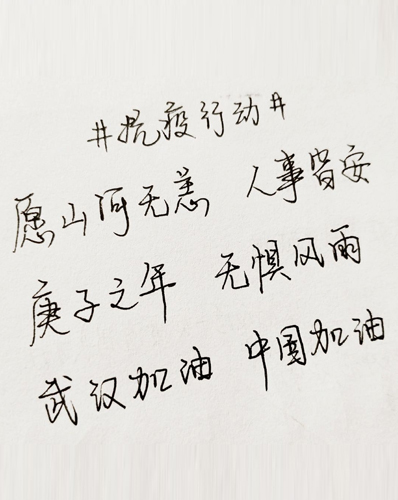 #抗疫行动#
愿山河无恙 人事皆安
庚子之年 无惧风雨
武汉加油 中国加油